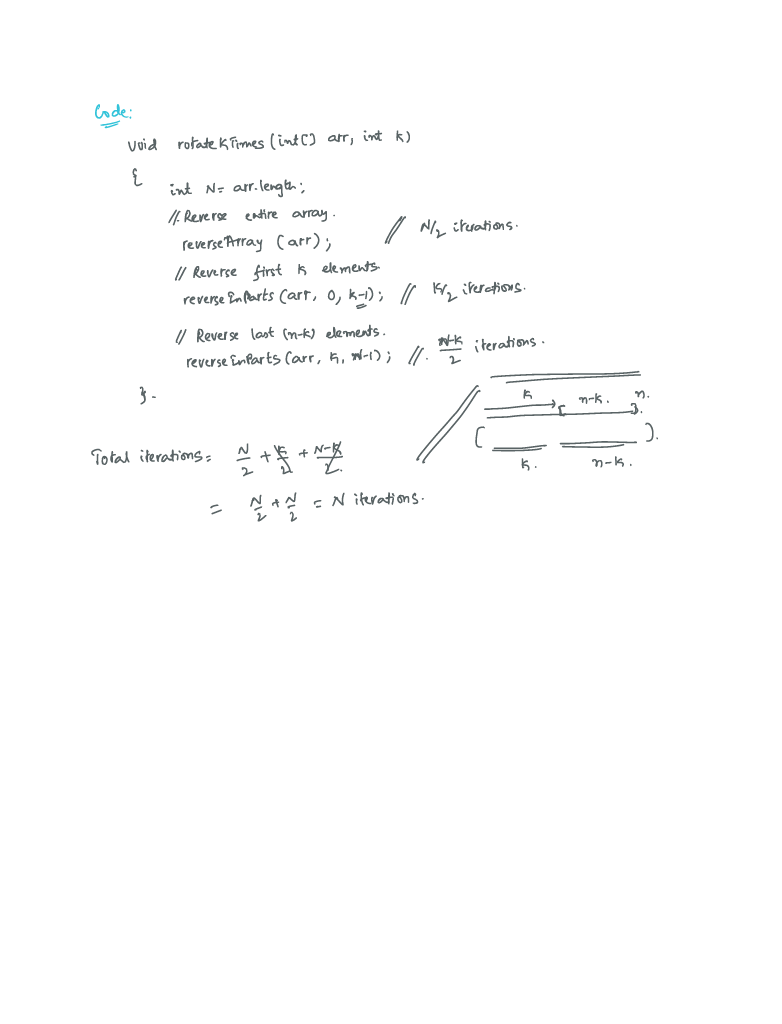 Code:
void rotateKTimes (int[] arr, int k)
{
int N= arr.length;
// Reverse entire array.
reverseArray (arr); // N/2 iterations.
// Reverse first k elements.
reverseInParts (arr, 0, k-1); // K/2 iterations.
// Reverse last (n-k) elements.
reverseInParts (arr, k, N-1); // N-K/2 iterations.
}.
k n-k. n.
[ ].
k. n-k.
Total iterations = N/2 + K/2 + N-K/2.
= N/2 + N/2 = N iterations.